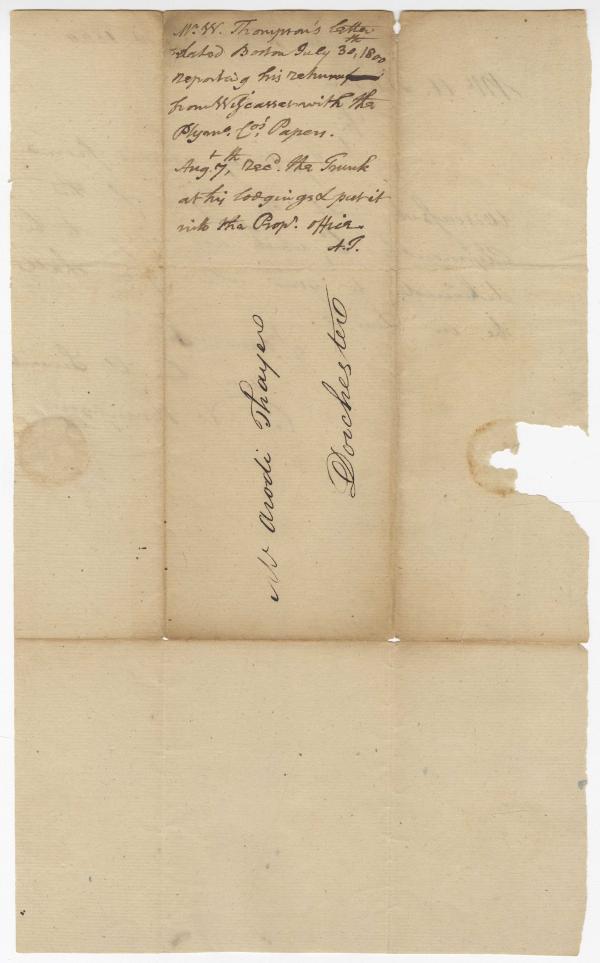 Mr. W. Thompson's letter
dated Boston July 30th, 1800
reporting his return
from Wiscasset with the
Plymo. Co's. Papers.
Augt. 7th, recd. the Trunk
at his lodgings & put it
into the Propr. office.
A.T.
Mr Arodi Thayer
Dorchester